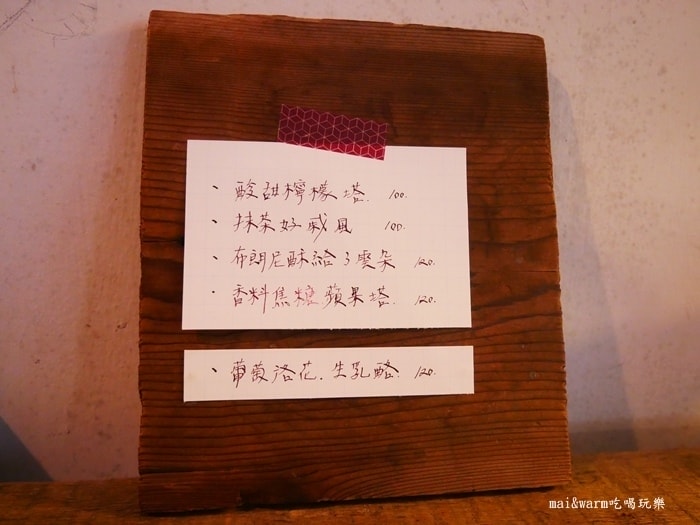 · 酸甜檸檬塔. 100.
· 抹茶好戚風 100.
· 布朗尼酥給了雲朵 120.
· 香料焦糖蘋果塔. 120.
· 葡萄洛花.生乳酪. 120.
mai&warm吃喝玩樂